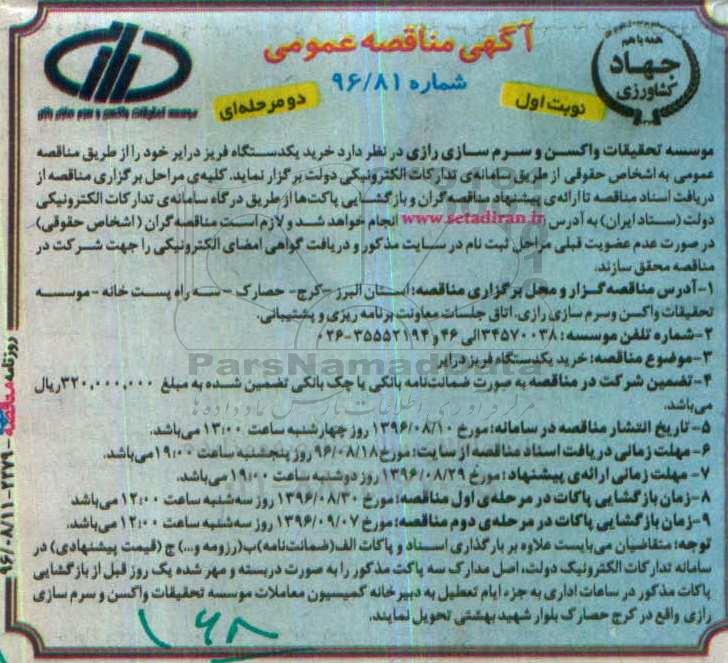 آگهی مناقصه عمومی
شماره ۹۶/۸۱
نوبت اول
دو مرحله‌ای
همه با هم
جهاد
کشاورزی
موسسه تحقیقات واکسن و سرم سازی رازی
موسسه تحقیقات واکسن و سرم سازی رازی در نظر دارد خرید یکدستگاه فریز درایر خود را از طریق مناقصه
عمومی به اشخاص حقوقی از طریق سامانه‌ی تدارکات الکترونیکی دولت برگزار نماید. کلیه‌ی مراحل برگزاری مناقصه از
دریافت اسناد مناقصه تا ارائه‌ی پیشنهاد مناقصه گران و بازگشایی پاکت‌ها از طریق درگاه سامانه‌ی تدارکات الکترونیکی
دولت (ستاد ایران) به آدرس www.setadiran.ir انجام خواهد شد و لازم است مناقصه گران (اشخاص حقوقی)
در صورت عدم عضویت قبلی مراحل ثبت نام در سایت مذکور و دریافت گواهی امضای الکترونیکی را جهت شرکت در
مناقصه محقق سازند.
۱-آدرس مناقصه گزار و محل برگزاری مناقصه: استان البرز -کرج- حصارک - سه راه پست خانه -موسسه
تحقیقات واکسن وسرم سازی رازی. اتاق جلسات معاونت برنامه ریزی و پشتیبانی.
۲-شماره تلفن موسسه: ۳۴۵۷۰۰۳۸الی ۴۶ و ۳۵۵۵۲۱۹۴-۰۲۶
۳-موضوع مناقصه: خرید یکدستگاه فریز درایر
۴-تضمین شرکت در مناقصه به صورت ضمانت‌نامه بانکی یا چک بانکی تضمین شده به مبلغ ۳۲۰,۰۰۰,۰۰۰ریال
می‌باشد.
۵- تاریخ انتشار مناقصه در سامانه: مورخ ۱۳۹۶/۰۸/۱۰ روز چهارشنبه ساعت ۱۳:۰۰ می‌باشد.
۶-مهلت زمانی دریافت اسناد مناقصه از سایت: مورخ ۹۶/۰۸/۱۸ روز پنجشنبه ساعت ۱۹:۰۰می‌باشد.
۷- مهلت زمانی ارائه‌ی پیشنهاد: مورخ ۱۳۹۶/۰۸/۲۹ روز دوشنبه ساعت ۱۹:۰۰ می‌باشد.
۸-زمان بازگشایی پاکات در مرحله‌ی اول مناقصه: مورخ ۱۳۹۶/۰۸/۳۰ روز سه‌شنبه ساعت ۱۲:۰۰ می‌باشد
۹-زمان بازگشایی پاکات در مرحله‌ی دوم مناقصه: مورخ ۱۳۹۶/۰۹/۰۷ روز سه‌شنبه ساعت ۱۲:۰۰ می‌باشد.
توجه: متقاضیان می‌بایست علاوه بر بارگذاری اسناد و پاکات الف(ضمانت‌نامه)ب(رزومه و...) ج (قیمت پیشنهادی) در
سامانه تدارکات الکترونیک دولت، اصل مدارک سه پاکت مذکور را به صورت دربسته و مهر شده یک روز قبل از بازگشایی
پاکات مذکور در ساعات اداری به جزء ایام تعطیل به دبیرخانه کمیسیون معاملات موسسه تحقیقات واکسن و سرم سازی
رازی واقع در کرج حصارک بلوار شهید بهشتی تحویل نمایند.
ParsNamadData
روزنامه مناقصه - ۲۲۷۹ - ۹۶/۰۸/۱۱
۱۶۸